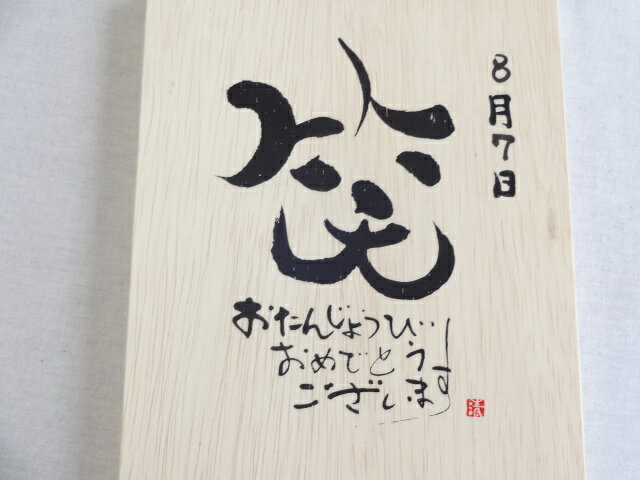 8月7日
笑
おたんじょうび
おめでとう
ございます